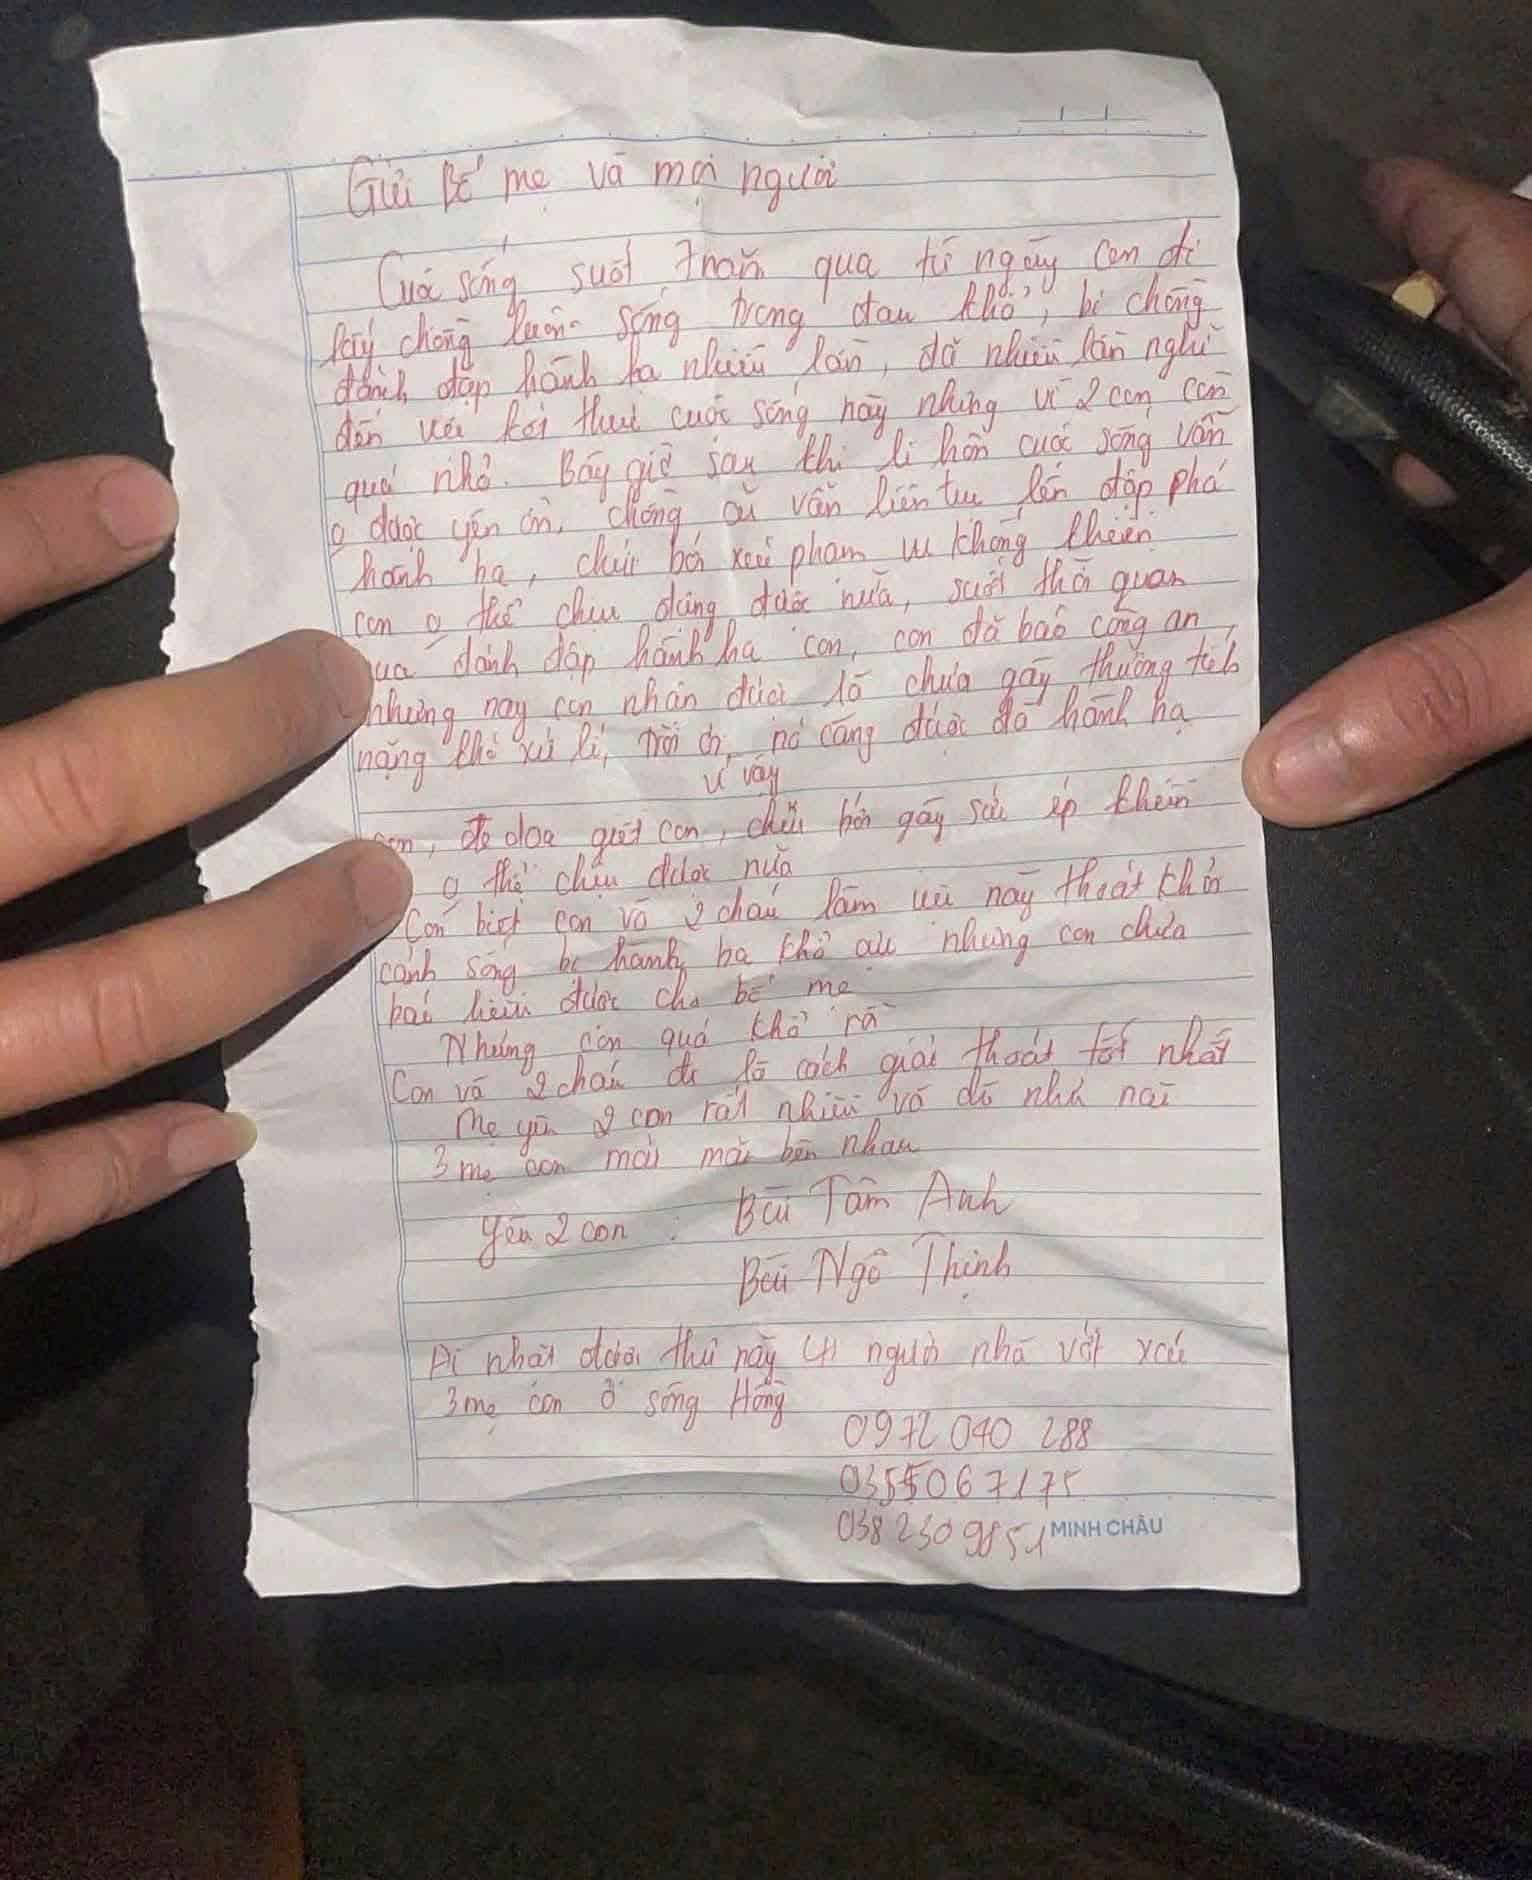 Gửi Bố mẹ và mọi người
Cuộc sống suốt 7 năm qua từ ngày con đi
lấy chồng luôn sống trong đau khổ, bị chồng
đánh đập hành hạ nhiều lần, đã nhiều lần nghĩ
đến việc kết thúc cuộc sống này nhưng vì 2 con còn
quá nhỏ. Bây giờ sau khi li hôn cuộc sống vẫn
o được yên ổn, chồng cũ vẫn liên tục lên đập phá
hành hạ, chửi bới xúc phạm khiến
con o thể chịu đựng được nữa, suốt thời quan
qua đánh đập hành hạ con, con đã báo công an,
nhưng nay con nhận được là chưa gây thương tích
nặng khó xử lí, trời ơi, nó càng được đà hành hạ
vì vậy
con, đe dọa giết con, chửi bới gây sức ép khiến
o thể chịu được nữa
Con biết con và 2 cháu làm việc này thoát khỏi
cảnh sống bị hành hạ khổ ải nhưng con chưa
báo hiếu được cho bố mẹ
Nhưng con quá khổ rồi
Con và 2 cháu đi là cách giải thoát tốt nhất
Mẹ yêu 2 con rất nhiều và dù như nào
3 mẹ con mãi mãi bên nhau
Yêu 2 con : Bùi Tâm Anh
Bùi Ngô Thịnh
Ai nhặt được thư này người nhà vớt xác
3 mẹ con ở sông Hồng
0972 040 288
0355067175
038 230 9851
MINH CHÂU